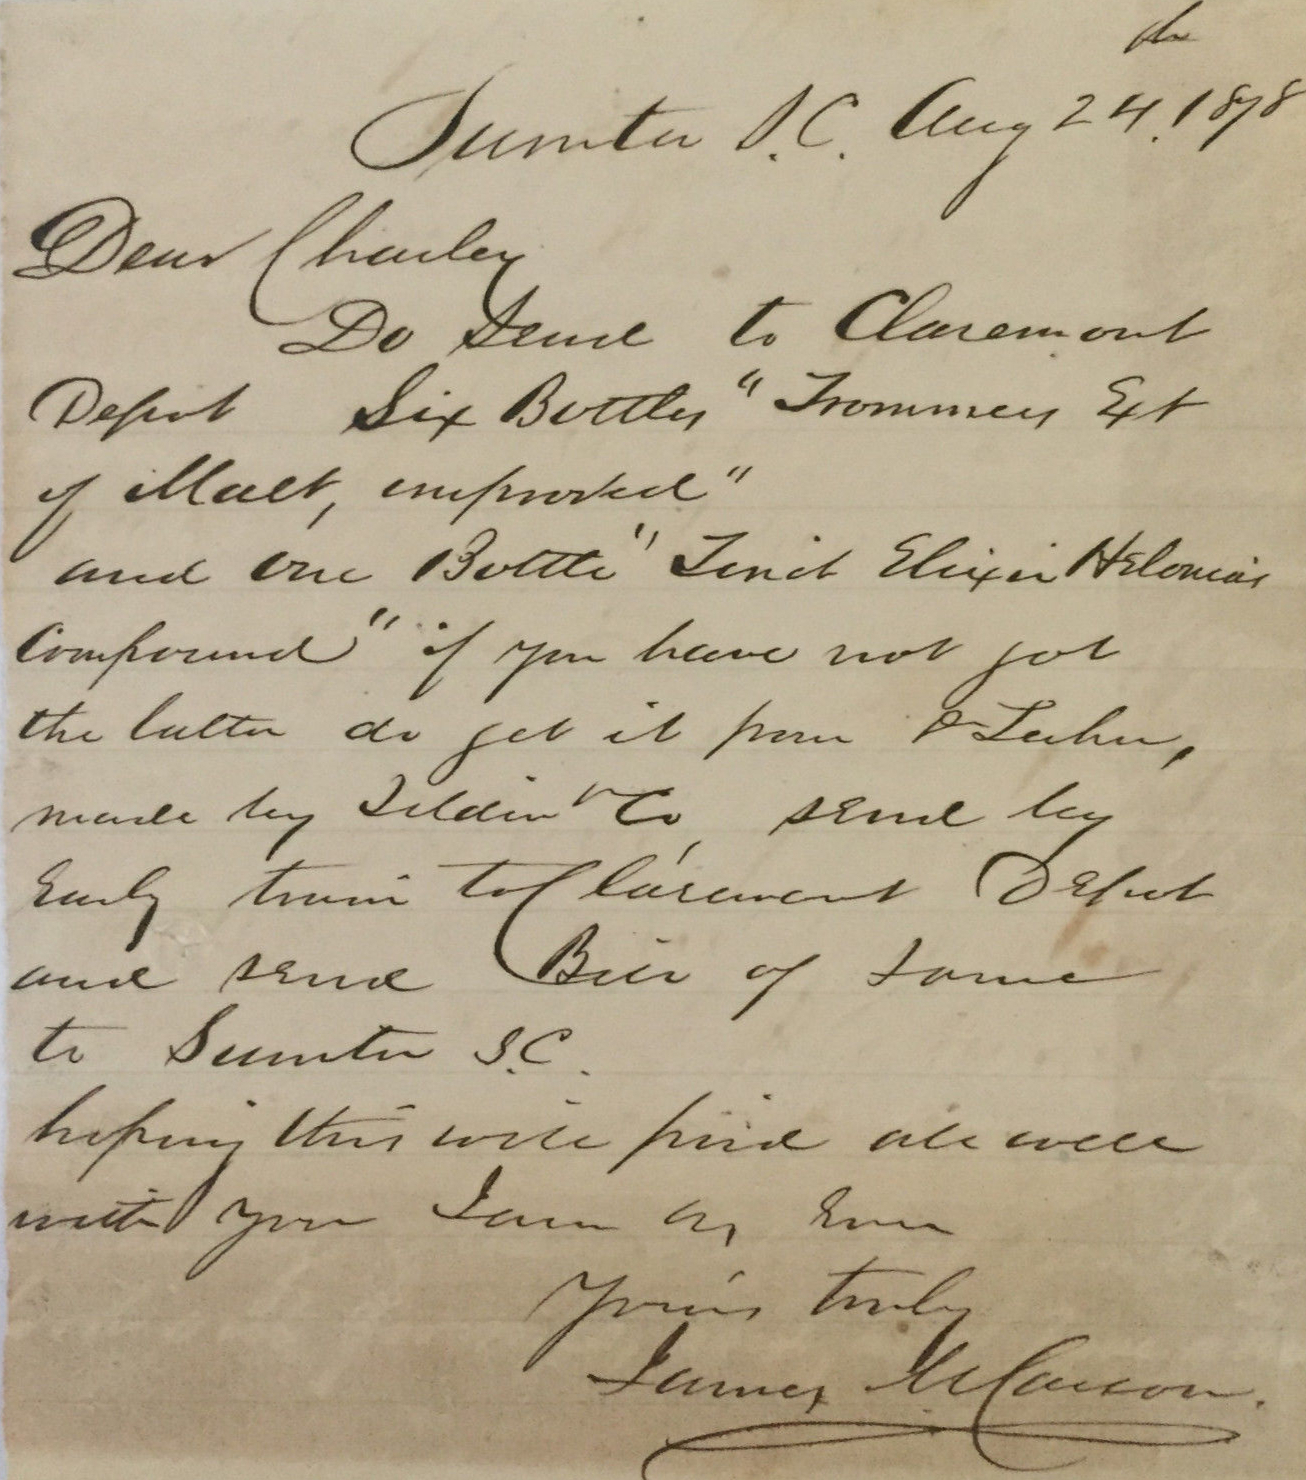 Sumter S.C. Aug 24th. 1878
Dear Charley
Do send to Claremont
Depot Six Bottles "Trommers Ext
of Malt, improved"
and one Bottle "Tinct Elixir Helonias
Compound" if you have not got
the latter do get it from Dr
made by Tilden & Co, send by
Early train to Claremont Depot
and send Bill of same
to Sumter S.C.
hoping this will find all well
with you I am as Ever
Yours truly
James